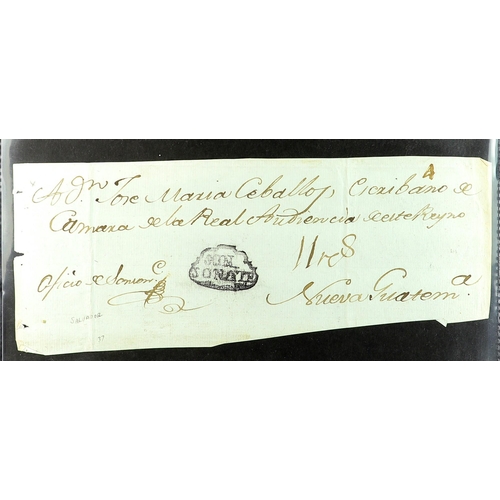 A
A dn. Jose Maria Ceballos, Escribano de
Camara de la Real Audiencia de este Reyno
11 rs 8
Oficio de Sonson.e
SON
SONATE
Nueva Guatem.a